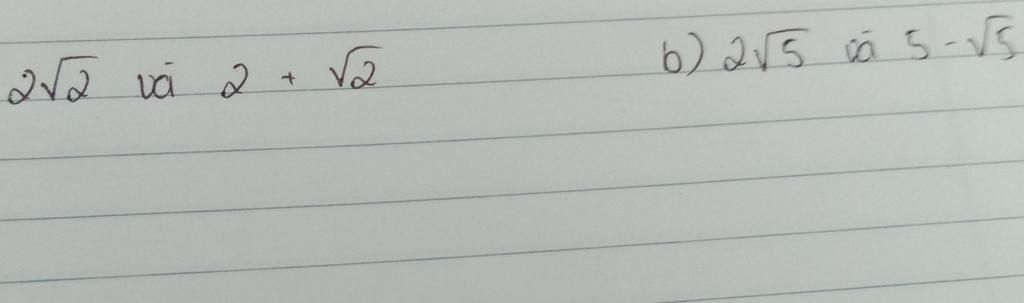 2√2 và 2 + √2
b) 2√5 và 5 - √5